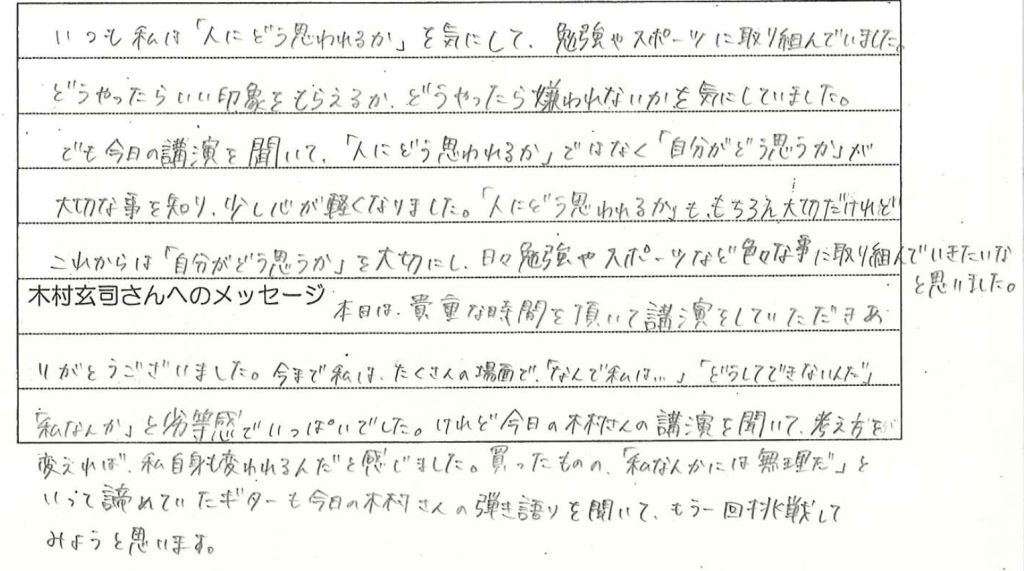 いつも私は「人にどう思われるか」を気にして、勉強やスポーツに取り組んでいました。
どうやったらいい印象をもらえるか、どうやったら嫌われないかを気にしていました。
でも今日の講演を聞いて、「人にどう思われるか」ではなく「自分がどう思うか」が
大切な事を知り、少し心が軽くなりました。「人にどう思われるか」も、もちろん大切だけれど
これからは「自分がどう思うか」を大切にし、日々勉強やスポーツなど色々な事に取り組んでいきたいな
と思いました。
木村玄司さんへのメッセージ
本日は、貴重な時間を頂いて講演をしていただきあ
りがとうございました。今まで私は、たくさんの場面で、「なんで私は…」「どうしてできないんだ」
「私なんか」と劣等感でいっぱいでした。けれど今日の木村さんの講演を聞いて、考え方を
変えれば、私自身も変われるんだと感じました。買ったものの、「私なんかには無理だ」と
いって諦めていたギターも今日の木村さんの弾き語りを聞いて、もう一回挑戦して
みようと思います。